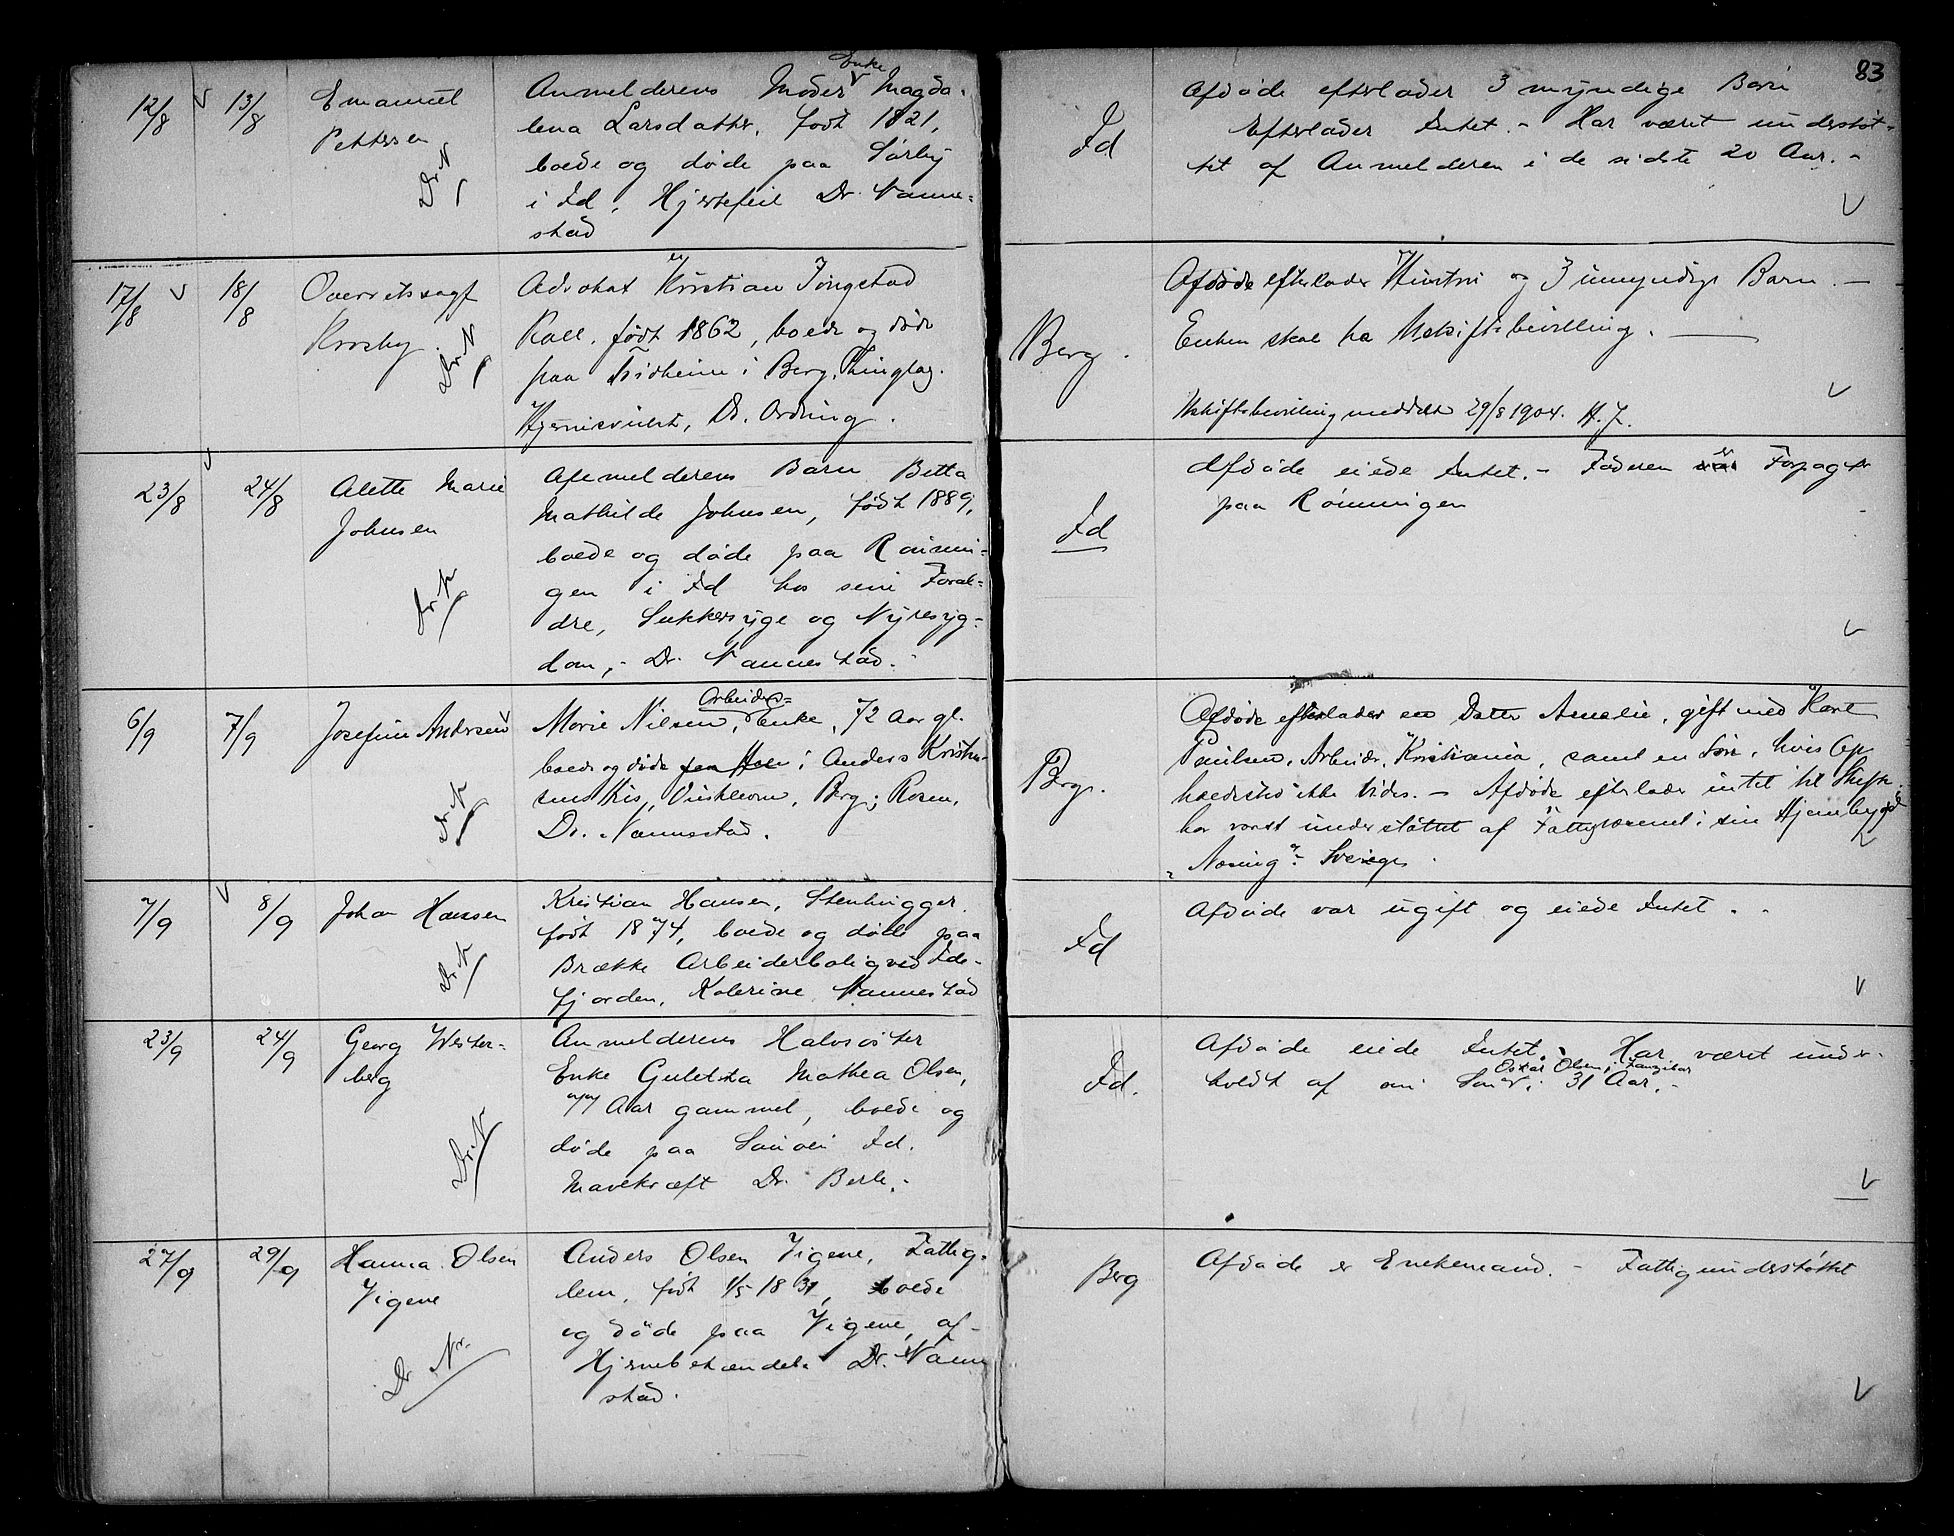 83
12/8 13/8
Emanuel
Pettersen
Dr. N
Enke
Anmelderens Moder Magda-
lena Larsdatter, født 1821,
boede og døde paa Sørby
i Id, Hjertefeil Dr. Nanne-
stad
Id
Afdøde efterlader 3 myndige Børn
Efterlader Intet. - Har været understøt-
tet af Anmelderen i de sidste 20 Aar. -
17/8 18/8
Overretssagf
Krosby.
Dr. N
Advokat Kristian Tingstad
Rall, født 1862, boede og døde
paa i Berg Thinglag.
Hjernesvulst, Dr. Ordning.
Berg.
Afdøde efterlader Hustru og 3 umyndige Børn. -
Enken skal ha Uskiftebevilling.
Uskiftebevilling meddelt 29/8 1904. H. J.
23/8 24/8
Alette Marie
Johnsen
Dr. N
Anmelderens Barn Betta
Mathilde Johnsen, født 1889,
boede og døde paa Rønnin-
gen i Id hos sine Foræl-
dre, Sukkersyge og Nyresyg-
dom, - Dr. Nannestad. -
Id
Afdøde eiede Intet. - Faderen var er Forpagter
paa Rønningen
6/9 7/9
Josefine Andersen
Dr. N
Arbeider-
Marie Nilsen, Enke, 72 Aar gl.
boede og døde paa i Anders Kristen-
sens Hus, Vinkleven, Berg; Rosen,
Dr. Nannestad.
Berg.
Afdøde efterlader en Datter Amalie, gift med Karl
Paulsen, Arbeider, Kristiania, samt en Søn, hvis Op
holdssted ikke vides. - Afdøde efterlader intet til Skifte
har været understøttet af Fattigvæsenet i sin Hjembygd
"Næsing" - Sverige.
7/9 8/9
Johan Hansen
Dr. N
Kristian Hansen, Stenhugger,
født 1874, boede og døde paa
Brække Arbeiderbolig ved Ide-
fjorden, Kolerine Nannestad
Id
Afdøde var ugift og eiede Intet. -
23/9 24/9
Georg Wester-
berg
Dr. N
Anmelderens Halvsøster
Enke Guletta Mathea Olsen,
77 Aar gammel, boede og
døde paa Id.
Mavekræft Dr. Berle. -
Id.
Afdøde eiede Intet. - Har været under-
Oskar Olsen i Zanzibar
holdt af sin Søn i 31 Aar. -
27/9 29/9
Hanna Olsen
Vigene
Dr. N.
Anders Olsen Vigene, Fattig-
lem, født 1/5 1831, boede
og døde paa Vigene, af
Hjernebetændelse Dr. Nanne
stad.
Berg
Afdøde er Enkemand. - Fattigunderstøttet